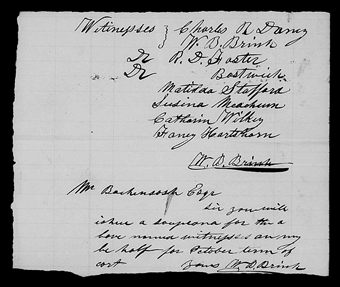 Witinesses } Charles R Dancy
W. B. Brink
Dr R. D. Foster
Dr Bostwick
Matilda Stafford
Lusina Meacham
Catharin Wilkey
Haney Hartshorn
W. D. Brink
Mr Backensoss Esqr
Sir you will
ishue a soupeona for the a
bove named witnesses on my
be half for October term of
cort Yours W. D. Brink